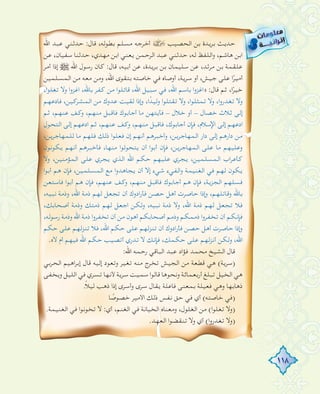 معلومات إيمانية
حديث بريدة بن الحصيب ﷺ أخرجه مسلم بطوله، قال: حدثني عبد الله
ابن هاشم، واللفظ له، حدثني عبد الرحمن يعني ابن مهدي، حدثنا سفيان، عن
علقمة بن مرثد، عن سليمان بن بريدة، عن أبيه، قال: كان رسول الله ﷺ إذا أمر
أميرًا على جيش، أو سرية، أوصاه في خاصته بتقوى الله، ومن معه من المسلمين
خيرًا، ثم قال: «اغزوا باسم الله، في سبيل الله، قاتلوا من كفر بالله، اغزوا ولا تغلوا،
ولا تغدروا، ولا تمثلوا، ولا تقتلوا وليدا، وإذا لقيت عدوك من المشركين، فادعهم
إلى ثلاث خصال – أو خلال – فأيتهن ما أجابوك فاقبل منهم، وكف عنهم، ثم
ادعهم إلى الإسلام، فإن أجابوك، فاقبل منهم، وكف عنهم، ثم ادعهم إلى التحول
من دارهم إلى دار المهاجرين، وأخبرهم أنهم إن فعلوا ذلك فلهم ما للمهاجرين،
وعليهم ما على المهاجرين، فإن أبوا أن يتحولوا منها، فأخبرهم أنهم يكونون
كأعراب المسلمين، يجري عليهم حكم الله الذي يجري على المؤمنين، ولا
يكون لهم في الغنيمة والفيء شيء إلا أن يجاهدوا مع المسلمين، فإن هم أبوا
فسلهم الجزية، فإن هم أجابوك فاقبل منهم، وكف عنهم، فإن هم أبوا فاستعن
بالله وقاتلهم، وإذا حاصرت أهل حصن فأرادوك أن تجعل لهم ذمة الله، وذمة نبيه،
فلا تجعل لهم ذمة الله، ولا ذمة نبيه، ولكن اجعل لهم ذمتك وذمة أصحابك،
فإنكم أن تخفروا ذممكم وذمم أصحابكم أهون من أن تخفروا ذمة الله وذمة رسوله،
وإذا حاصرت أهل حصن فأرادوك أن تنزلهم على حكم الله، فلا تنزلهم على حكم
الله، ولكن أنزلهم على حكمك، فإنك لا تدري أتصيب حكم الله فيهم أم لا».
قال الشيخ محمد فؤاد عبد الباقي رحمه الله:
(سرية) هي قطعة من الجيش تخرج منه تغير وتعود إليه قال إبراهيم الحربي
هي الخيل تبلغ أربعمائة ونحوها قالوا سميت سرية لأنها تسري في الليل ويخفى
ذهابها وهي فعيلة بمعنى فاعلة يقال سرى وأسرى إذا ذهب ليلًا.
(في خاصته) أي في حق نفس ذلك الأمير خصوصًا.
(ولا تغلوا) من الغلول، ومعناه الخيانة في الغنم، أي: لا تخونوا في الغنيمة.
(ولا تغدروا) أي ولا تنقضوا العهد.
١١٨